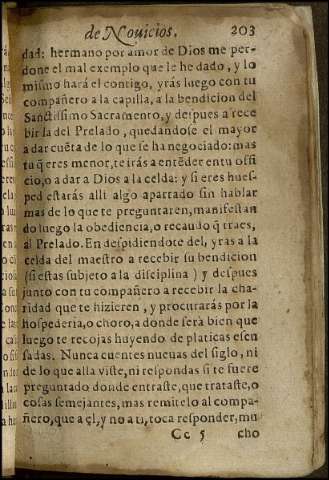 de Nouicios. 203
dad: hermano por amor de Dios me per-
done el mal exemplo que le he dado, y lo
mismo hará el contigo, yrás luego con tu
compañero a la capilla, a la bendicion del
Sanctissimo Sacramento, y despues a rece
bir la del Prelado, quedandose el mayor
a dar cuẽta de lo que se ha negociado: mas
tu q̃ eres menor, te irás a entẽder en tu offi
cio, o a dar a Dios a la celda: y si eres hues-
ped estarás alli algo apartado sin hablar
mas de lo que te preguntaren, manifestan
do luego la obediencia, o recaudo q̃ traes,
al Prelado. En despidiendote del, yras a la
celda del maestro a recebir su bendicion
(si estas subjeto a la disciplina) y despues
junto con tu compañero a recebir la cha-
ridad que te hizieren, y procurarás por la
hospederia, o choro, a donde será bien que
luego te recojas huyendo de platicas escu
sadas. Nunca cuentes nueuas del siglo, ni
de lo que alla viste, ni respondas si te fuere
preguntado donde entraste, que trataste, o
cosas semejantes, mas remitelo al compa-
ñero, que a çl, y no a ti, toca responder, mu
Cc 5 cho